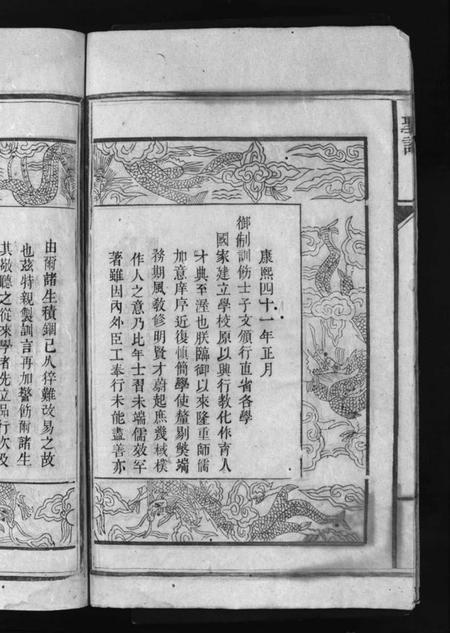 聖諭
康熙四十一年正月
御制訓飭士子文頒行直省各學
國家建立學校原以興行教化作育人
才典至渥也朕臨御以來隆重師儒
加意庠序近復慎簡學使釐剔獘端
務期風教修明賢才蔚起庶幾棫樸
作人之意乃比年士習未端儒效罕
著雖因內外臣工奉行未能盡善亦
由爾諸生積錮已久猝難改易之故
也茲特親製訓言再加警飭爾諸生
其敬聽之從來學者先立品行次及